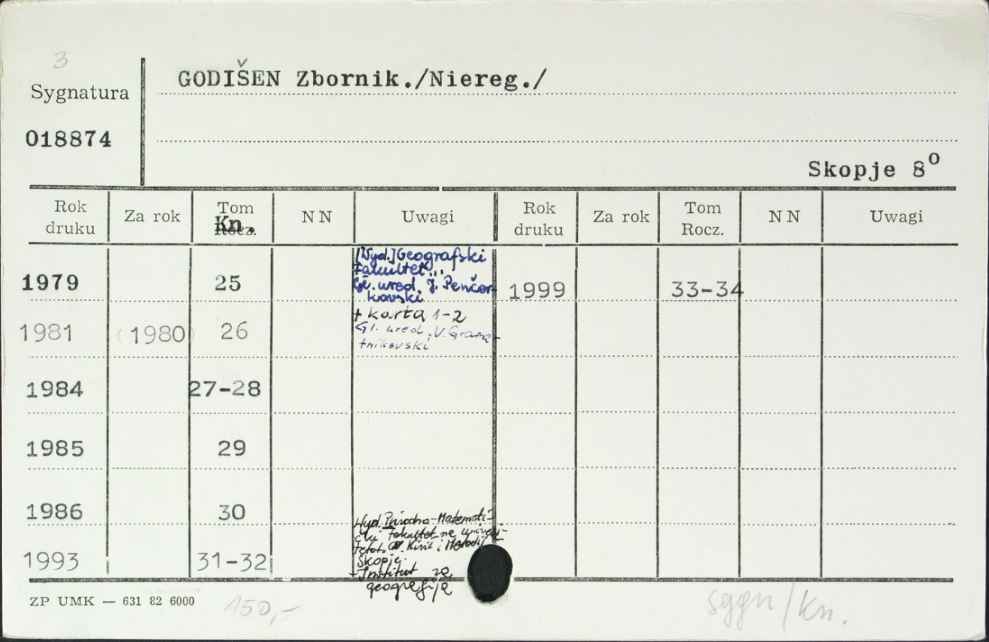 3
Sygnatura
018874
GODIŠEN Zbornik./Niereg./
Skopje 8º
Rok druku Za rok Tom Rocz. Kn. NN Uwagi Rok druku Za rok Tom Rocz. NN Uwagi
1979 25 1999 33-34
[Wyd.] Geografski
Fakultet...
Gł. ured. J. Penčor-
kovski
+ karta 1-2
1981 (1980) 26
Gl. ured. V.
tnikovski
1984 27-28
1985 29
1986 30
Wyd. Prirodno-Matemati-
čki Fakultet na
Kiril i Metodij
Skopje.
1993 31-32
+ Institut za
geografija
ZP UMK — 631 82 6000
150,-
sggn/Kn.